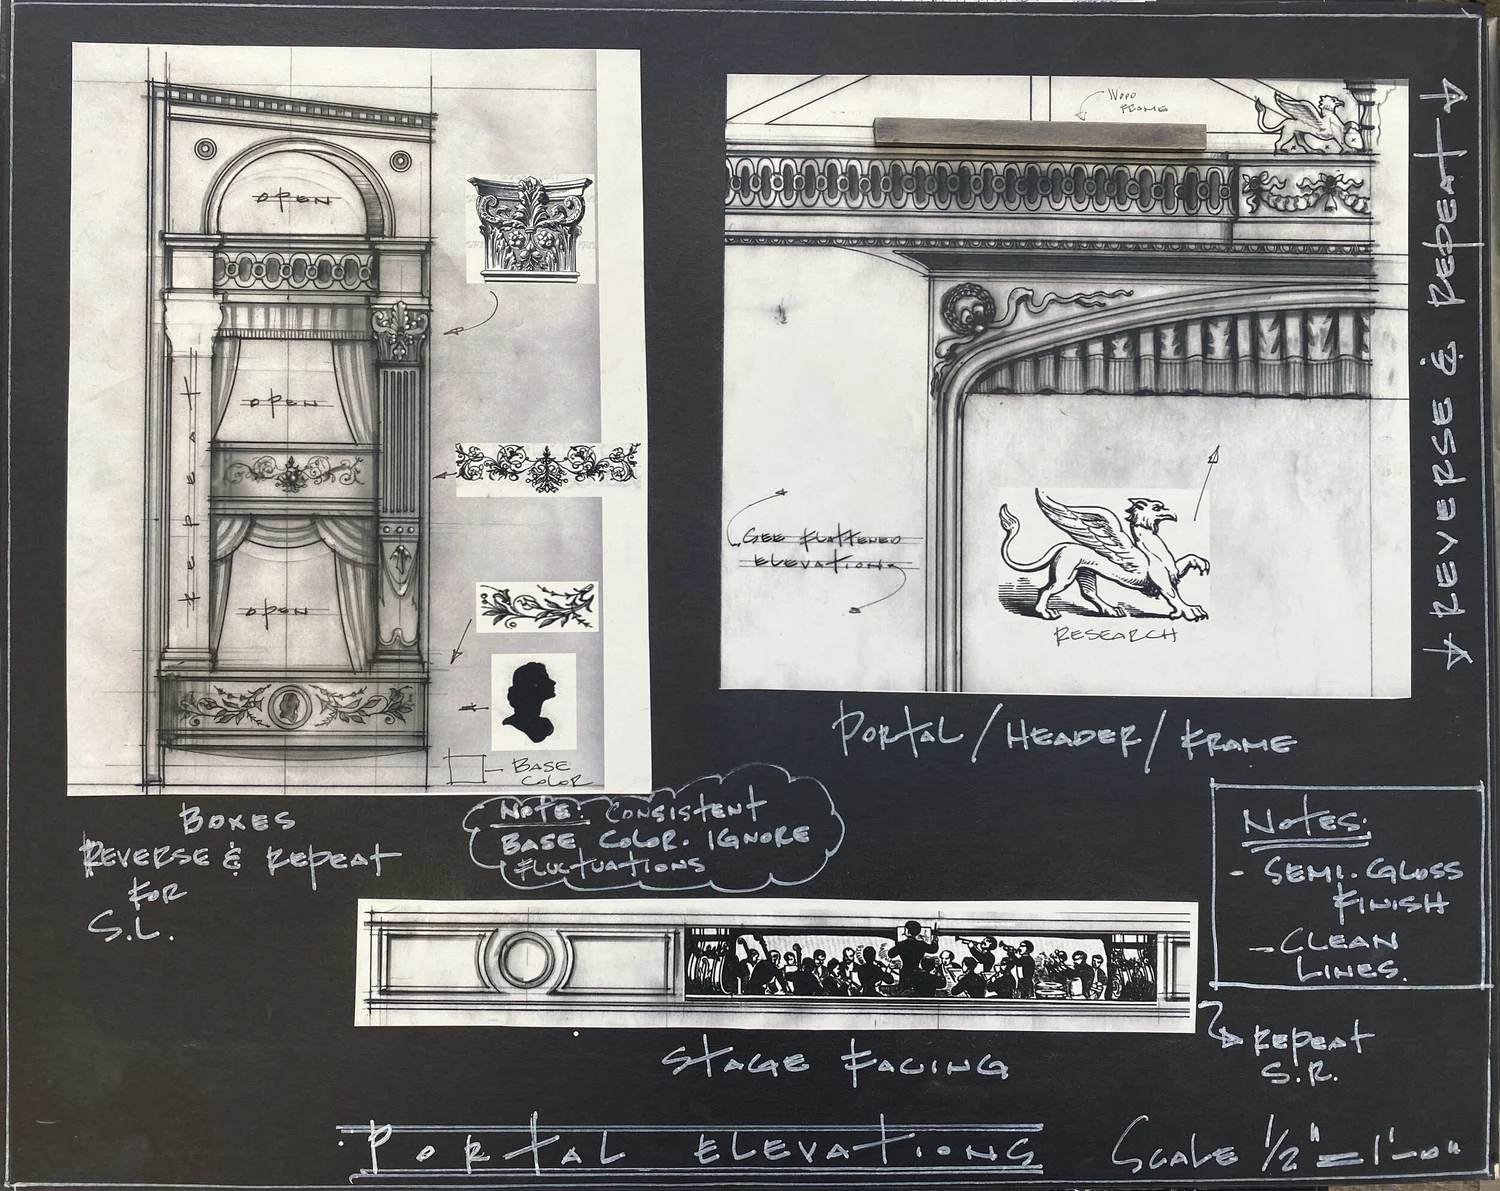 OPEN
OPEN
OPEN
REPEAT
BASE
COLOR
WOOD
FRAME
SEE FLATTENED
ELEVATIONS
RESEARCH
REVERSE & REPEAT
PORTAL / HEADER / FRAME
BOXES
REVERSE & REPEAT
FOR
S.L.
NOTE: CONSISTENT
BASE COLOR. IGNORE
FLUCTUATIONS
NOTES:
- SEMI-GLOSS
FINISH
- CLEAN
LINES.
REPEAT
S.R.
STAGE FACING
PORTAL ELEVATIONS
SCALE 1/2" = 1'-0"